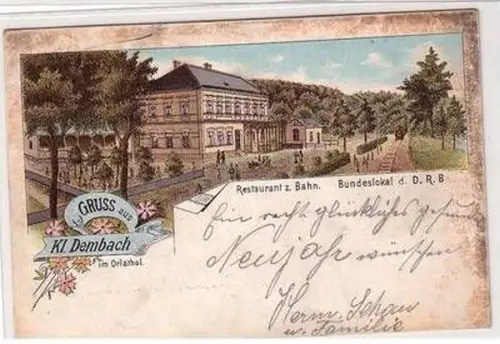 Restaurant z. Bahn. Bundeslokal d. D. R. B
GRUSS aus
Kl Dembach
im Orlathal.
Ein recht glückliches gesundes
Neujahr wünschen
Herm. Schau
u. Familie